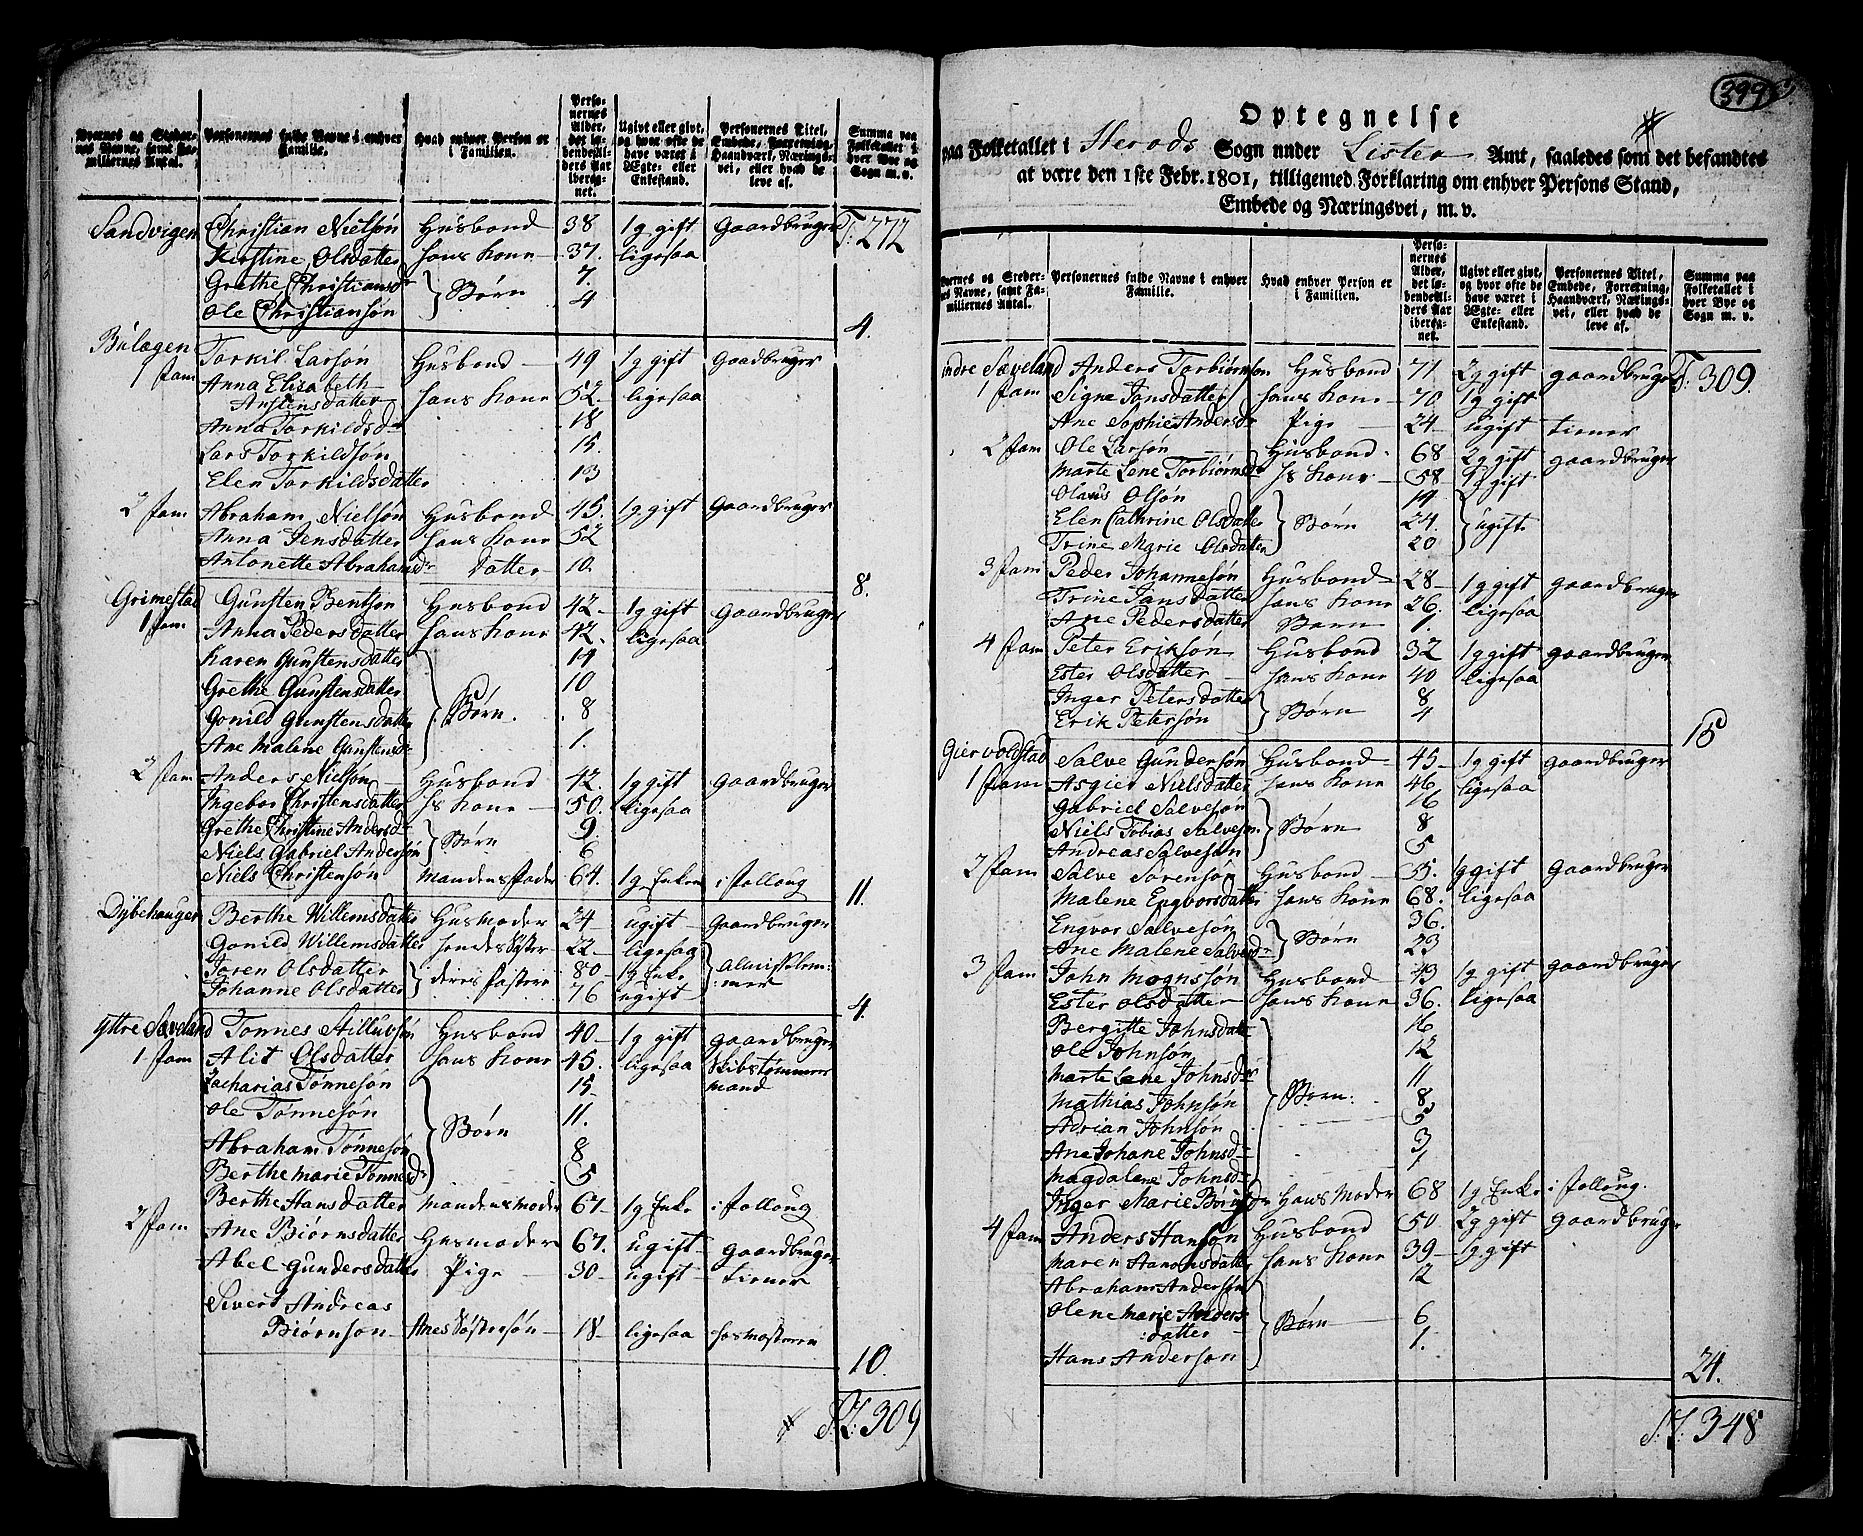 Byernes og Steder-
nes Navne, samt Fa-
miliernes Antal.
Personernes fulde Navne i enhver
Familie.
Hvad enhver Person er
i Familien.
Perso-
nernes
Alder,
det lø-
bende Al-
ders Aar
ibereg-
net.
Ugivt eller givt,
og hvor ofte de
have været i
Ægte- eller
Enkestand.
Personernes Titel,
Embede, Forretning,
Haandværk, Nærings-
vei, eller hvad de
leve af.
Summa paa
Folketallet i
hver Bye og
Sogn m. v.
Sandvigen Christian Nielsøn Husbond 38 1g gift gaardbruger T: 272
Kirstine Olsdatter hans Kone 37. ligesaa
Grethe Christiansdr Børn 7.
Ole Christiansøn 4
4.
Bulagen Torkil Larsøn Husbond 49 1g gift gaardbruger
1 fam Anna Elisabeth
Austensdatter hans Kone 52 ligesaa
Anna Torkildsdr 18
Lars Torkildsøn 15.
Elen Torkildsdatter 13
2 fam Abraham Nielsøn Husbond 45. 1g gift gaardbruger
Anna Jensdatter hans Kone 52
Antonette Abrahamsdr datter 10.
8.
Grimestad Gunsten Bentsøn Husbond 42 1g gift gaardbruger
1 fam Anna Pedersdatter hans Kone 42. ligesaa
Karen Gunstensdatter 14
Grethe Gunstensdatter 10
Gonild Gunstensdatter Børn. 8
Ane Malene Gunstensdr 1.
2 fam Anders Nielsøn Husbond 42. 1g gift gaardbruger
Ingebor Christensdatter hs Kone 50. ligesaa
Grethe Christine Andersdr Børn 9.
Niels Gabriel Andersøn 6
Niels Christensøn Mandens Fader 64. 1g Enke i folloug
11.
Dybehauger Berthe Willemsdatter Husmoder 24 ugift gaardbruger
Gonild Willemsdatter hendes Søster 22 ligesaa
Joren Olsdatter deres Fastere 80 1g Enke Almisselem:
Johanne Olsdatter 76 ugift :mer
4.
Yttre Sæveland Tønnes Stillufsøn Husbond 40 1g gift gaardbruger
1 fam Alit Olsdatter hans Kone 45. ligesaa Skibstømmer
Zacharias Tønnesøn 15 mand
Ole Tønnesøn Børn 11.
Abraham Tønnesøn 8
Berthe Marie Tønnesdr 5
Berthe Hansdatter Mandens moder 67 1g Enke i folloug
2 fam Ane Biørnsdatter Husmoder 67. ugift gaardbruger
Abel Gundersdatter Pige 30 ugift tiener
Sivert Andreas
Biørnsøn Anes Søstersøn 18 ligesaa hos mosteren
10.
S.T: 309
399
Optegnelse
paa Folketallet i Herods Sogn under Lister Amt, saaledes som det befandtes
at være den 1ste Febr. 1801, tilligemed Forklaring om enhver Persons Stand,
Embede og Næringsvei, m. v.
Byernes og Steder-
nes Navne, samt Fa-
miliernes Antal.
Personernes fulde Navne i enhver
Familie.
Hvad enhver Person er
i Familien.
Perso-
nernes
Alder,
det lø-
bende Al-
ders Aar
ibereg-
net.
Ugivt eller givt,
og hvor ofte de
have været i
Ægte- eller
Enkestand.
Personernes Titel,
Embede, Forretning,
Haandværk, Nærings-
vei, eller hvad de
leve af.
Summa paa
Folketallet i
hver Bye og
Sogn m. v.
indre Sæveland Anders Torbiørnsøn Husbond 71 2g gift gaardbruger T: 309.
1 fam Signe Jonsdatter hans Kone 70 1g gift
Ane Sophie Andersdr Pige 24 ugift tiener
2 fam Ole Larsøn Husbond 68 2g gift gaardbruger
Marte Lene Torbiørnsdr hs Kone 58 1g gift
Olaus Olsøn 19
Elen Cathrine Olsdatter Børn 24. ugift
Trine Marie Olsdatter 20
3 fam Peder Johannesøn Husbond 28 1g gift gaardbruger
Trine Jansdatter hans Kone 26. ligesaa
Ane Pedersdatter Barn 1.
4 fam Peter Eriksøn Husbond 32 1g gift gaardbruger
Ester Olsdatter hans Kone 40 ligesaa
Inger Petersdatter Børn 8
Erik Petersøn 4
15
Giervoldstad Salve Gundersøn Husbond 45 1g gift gaardbruger
1 fam Asgier Nielsdatter hans Kone 46 ligesaa
Gabriel Salvesøn 16
Niels Tobias Salvesøn Børn 8
Andreas Salvesøn 5
2 fam Salve Sørensøn Husbond 55. 1g gift gaardbruger
Malene Engvorsdatter hans Kone 68. ligesaa
Engvor Salvesøn Børn 36.
Ane Malene Salvesdr 23
3 fam John Mognssøn Husbond 49 1g gift gaardbruger
Ester Olsdatter hans Kone 36. ligesaa
Bergitte Johnsdatt 16
Ole Johnsøn 12
Marte Lene Johnsdr 11
Mathias Johnsøn Børn: 8
Adrian Johnsøn 5
Ane Johane Johnsd 3
Magdalene Johnsd 1
Inger Marie Børresdr Hans Moder 68 1g Enke i folloug.
4 fam Anders Hansøn Husbond 50 2g gift gaardbruger
Maren Aanonsdatter hans Kone 39 1g gift
Abraham Andersøn 12
Olene Marie Anders:
:datter Børn 6
Hans Andersøn 1.
24.
S.T. 348